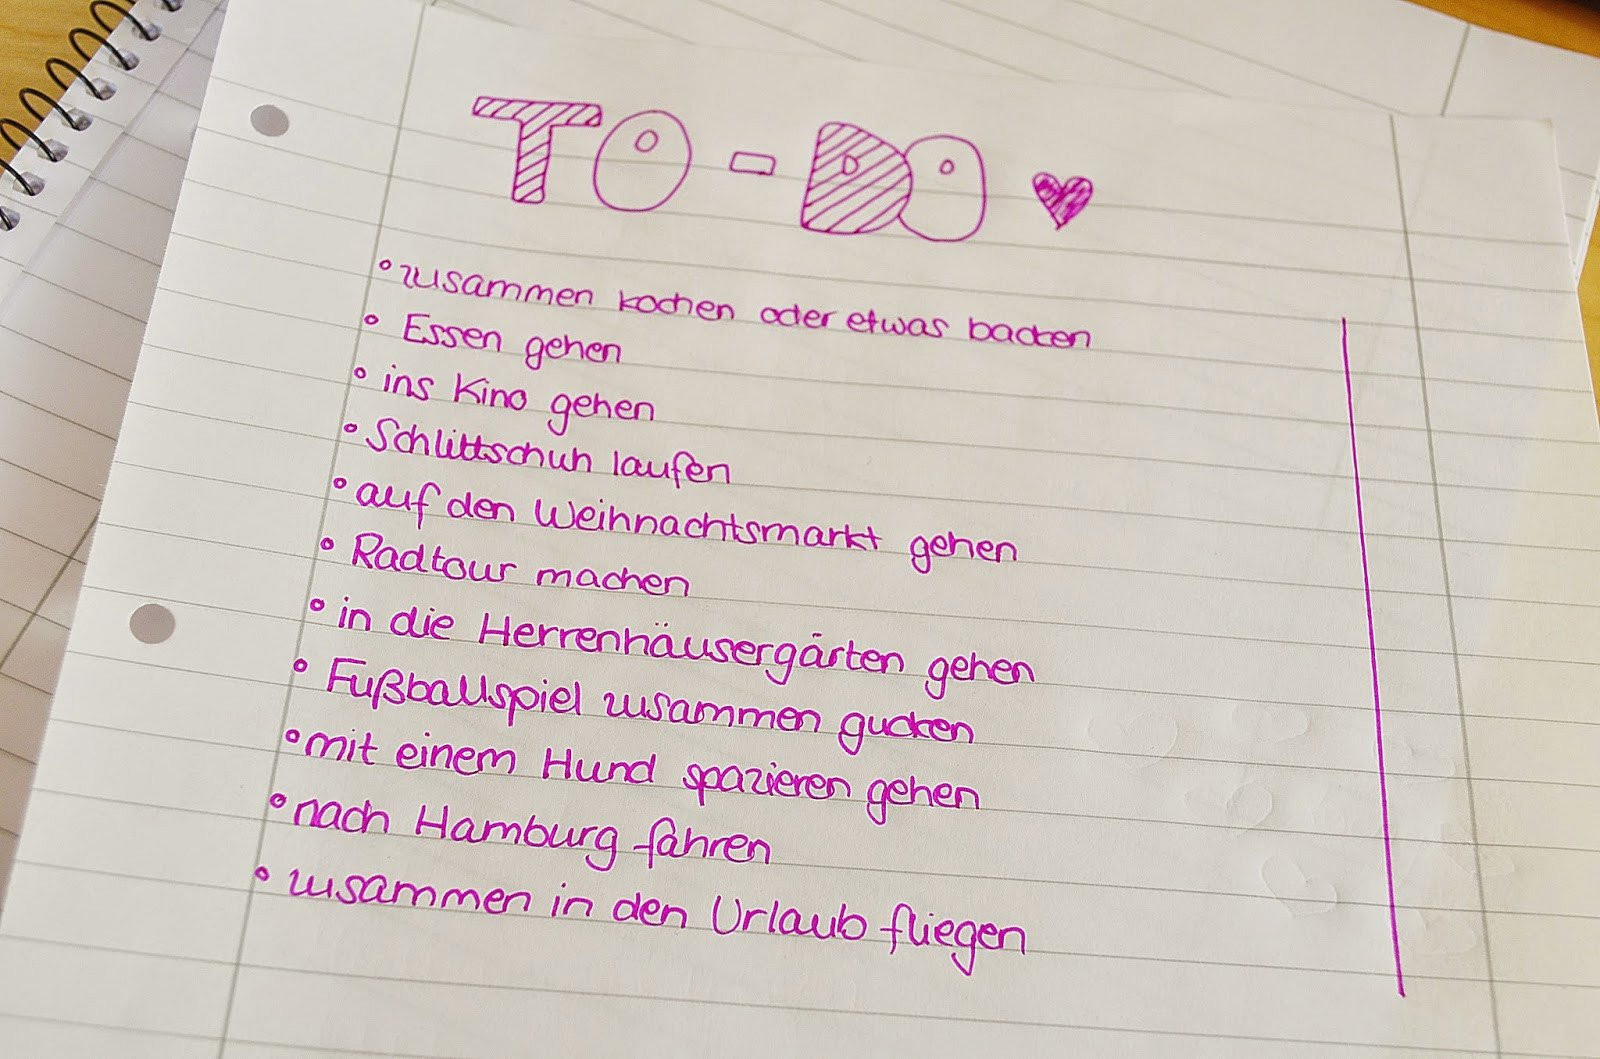 TO-DO ♥
° zusammen kochen oder etwas backen
° Essen gehen
° ins Kino gehen
° Schlittschuh laufen
° auf den Weihnachtsmarkt gehen
° Radtour machen
° in die Herrenhäusergärten gehen
° Fußballspiel zusammen gucken
° mit einem Hund spazieren gehen
° nach Hamburg fahren
° zusammen in den Urlaub fliegen